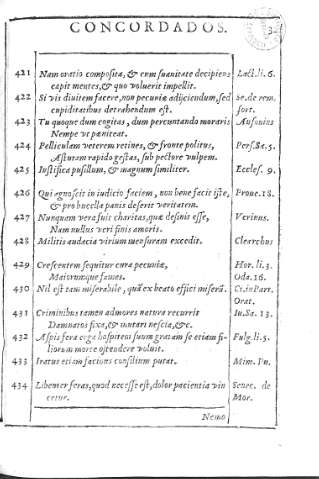 CONCORDADOS.
421 Nam oratio composita, & cum suauitate decipiens Lact.li.6.
capit mentes, & quo voluerit impellit.
422 Si vis diuitem facere, non pecuniæ adijciendum, sed Se.de rem.
cupiditatibus detrahendum est. fort.
423 Tu quoque dum cogitas, dum percunctando moraris Ausonius
Nempe vt pœniteat.
424 Pelliculam veterem retines, & fronte politus, Pers.Sa.5.
Astutam rapido gestas, sub pectore vulpem.
425 Iustifica pusillum, & magnum similiter. Eccles. 9.
426 Qui agnoscit in iudicio faciem, non bene facit iste, Proue.18.
& pro bucella panis deserit veritatem.
427 Nunquam vera fuit charitas, quæ desinit esse, Verinus.
Nam nullus veri finis amoris.
428 Militis audacia virium mensuram excedit. Clearchus
429 Crescentem sequitur cura pecuniam, Hor.li.3.
Maiorumque fames. Oda.16.
430 Nil est tam miserabile, quã ex beato effici miserũ. Ci.in Parr.
Orat.
431 Criminibus tamen ad mores natura recurrit Iu.Sa.13.
Damnatos fixa, & mutari nescia, &c.
432 Aspis fera erga hospitem suum gratam se etiam fi- Fulg.li.5.
liorum morte ostendere voluit.
433 Iratus etiam facinus consilium putat. Mim.Pu.
434 feras, quod necesse est, dolor pacientia vin Senec. de
cetur. Mor.
Nemo